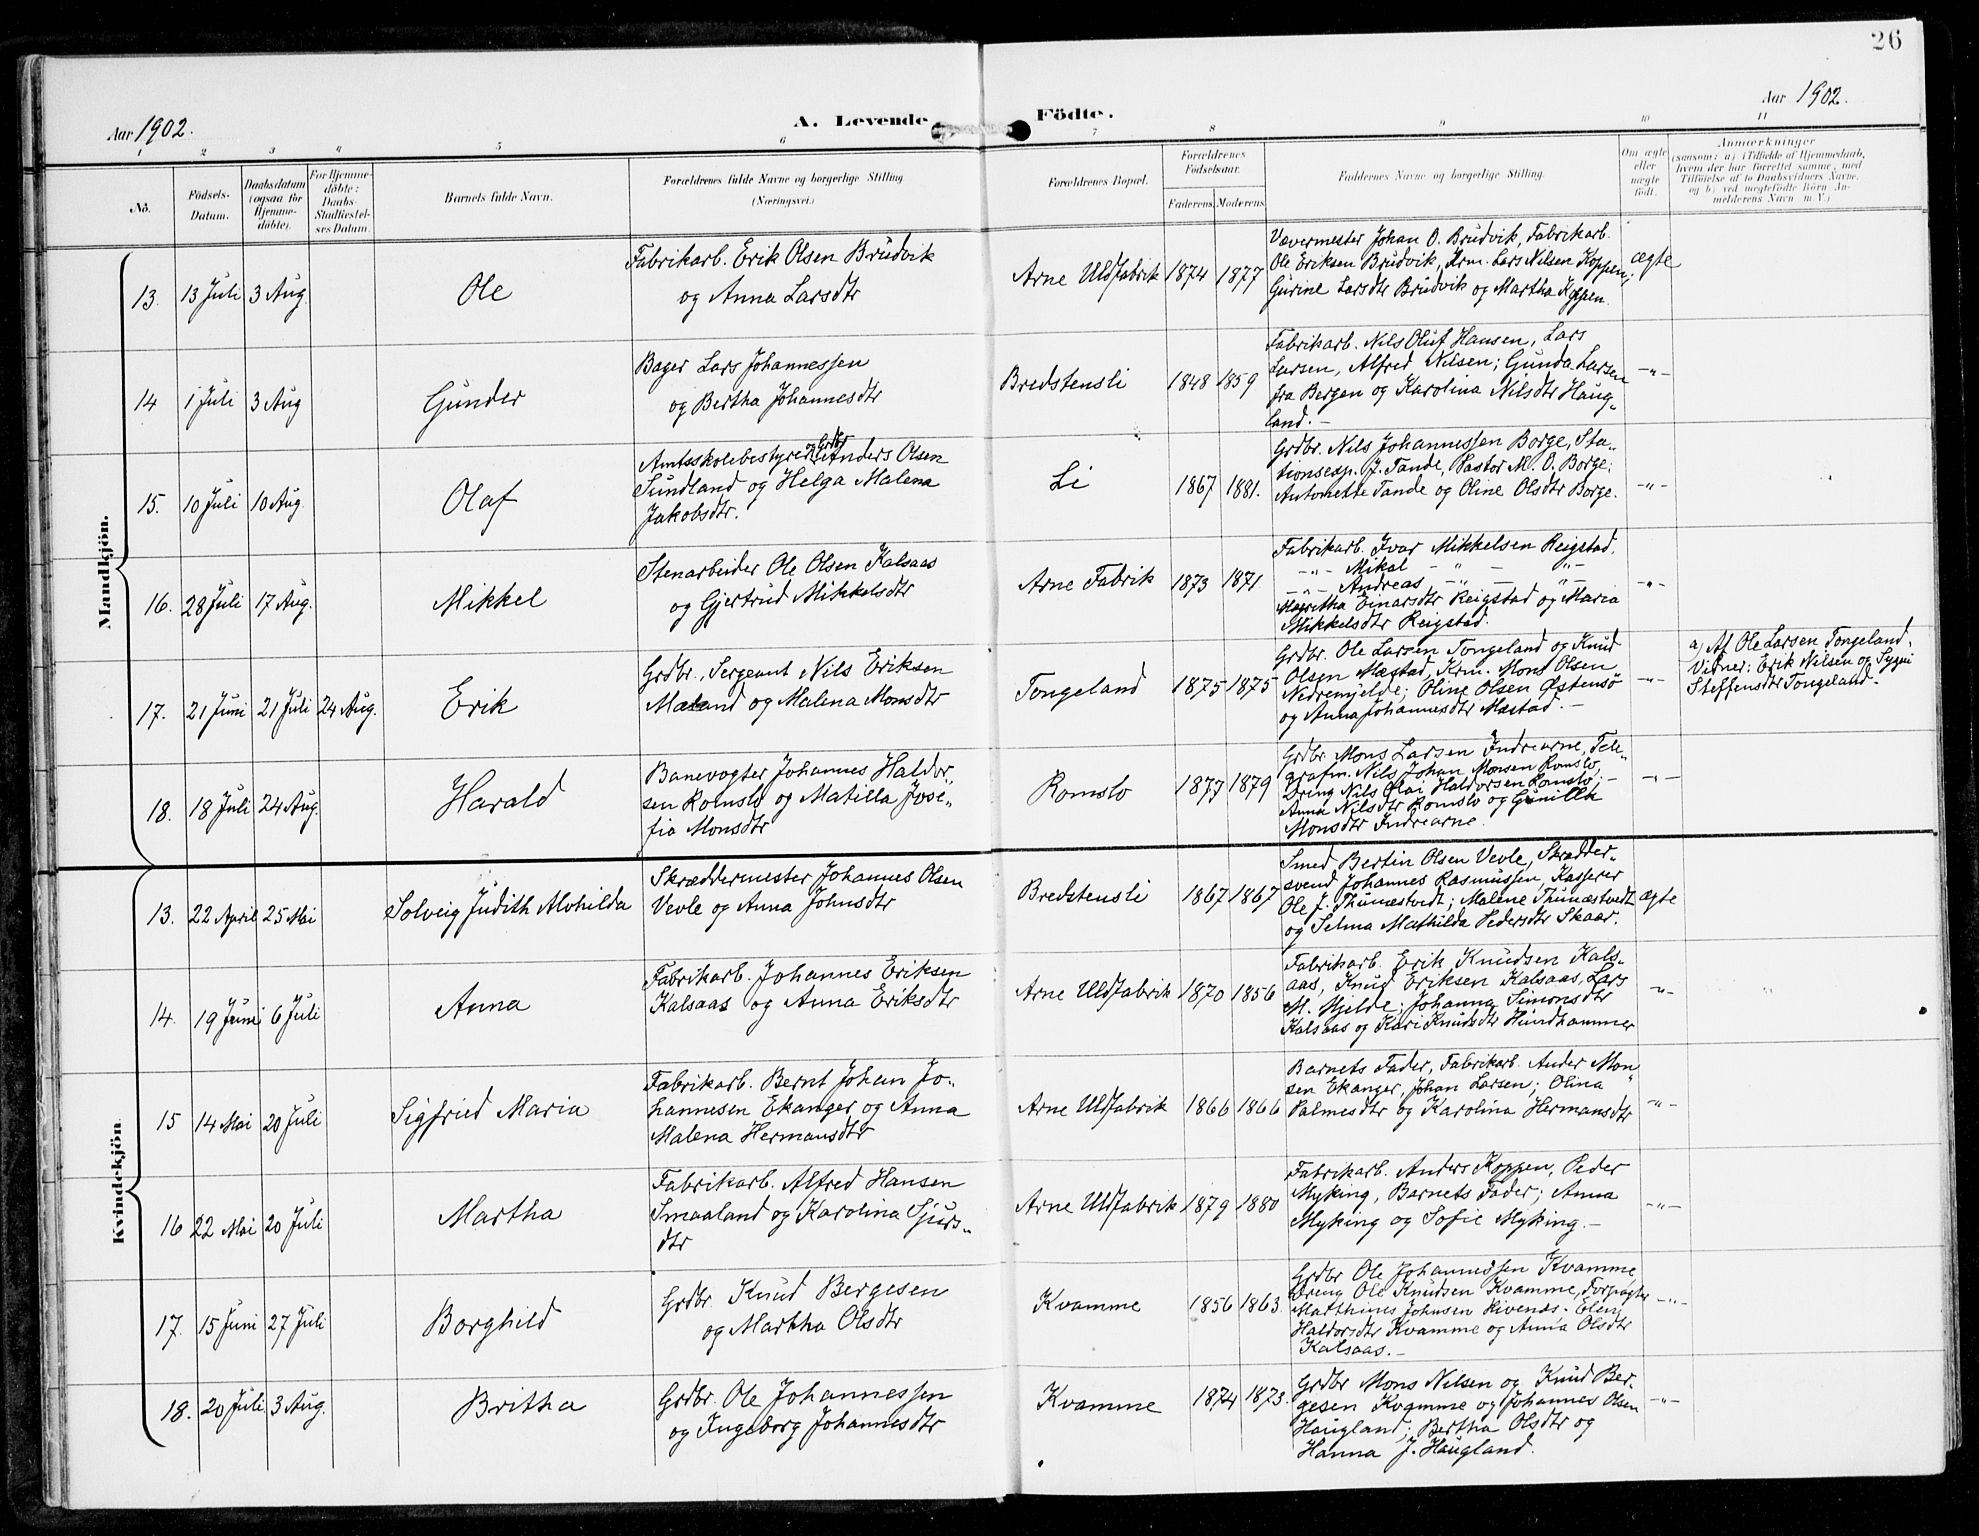 26
Aar 1902.
A. Levende Födte.
Aar 1902.
1 2 3 4 5 6 7 8 9 10 11
Nó.
Födsels-Datum.
Daabsdatum (ogsaa for Hjemmedöbte).
For Hjemmedöbte: Daabs-Stadfæstelses Datum.
Barnets fulde Navn.
Forældrenes fulde Navne og borgerlige Stilling (Næringsvei.)
Forældrenes Bopæl.
Forældrenes Födselsaar.
Faderens. Moderens.
Faddernes Navne og borgerlige Stilling.
Om ægte eller uægte födt.
Anmærkninger
(saasom: a) i Tilfælde af Hjemmedaab, hvem der har forrettet samme, med Tilföielse af to Daabsvidners Navne, og b) ved uægtefödte Börn Anmelderens Navn m.V.)
Mandkjön.
13. 13 Juli 3 Aug. Ole
Fabrikarb. Erik Olsen Brudvik
og Anna Larsdtr
Arne Uldfabrik 1874 1877
Vævermester Johan O. Brudvik, Fabrikarb.
Ole Eriksen Brudvik, Krm. Lars Nilsen Koppen;
Gurine Larsdtr Brudvik og Martha Koppen.
ægte
14 1 Juli 3 Aug Gunder
Bager Lars Johannessen
og Bertha Johannesdtr
Bredstensli 1848 1859
Fabrikarb. Nils Oluf Hansen, Lars
Larsen, Alfred Nilsen; Gunda Larsen
fra Bergen og Karolina Nilsdtr Haug-
land.-
-"-
15. 10 Juli 10 Aug. Olaf
Amtsskolebestyrer og Grdbr Anders Olsen
Sundland og Helga Malena
Jakobsdtr.
Li 1867 1881.
Grdbr. Nils Johannessen Borge, Sta-
tionsexp. J. Tande, Pastor M. O. Borge;
Antonette Tande og Oline Olsdtr Borge.
-"-
16. 28 Juli 17 Aug. Mikkel
Stenarbeider Ole Olsen Kalsaas
og Gjertrud Mikkelsdtr
Arne Fabrik 1873 1871
Fabrikarb. Ivar Mikkelsen Reigstad,
-"- Mikal - " - "-
-"- Andreas -"- - "-
Magritha Einarsdtr Reigstad og Maria
Mikkelsdtr Reigstad.
-"-
17. 21 Juni 21 Juli 24 Aug. Erik
Grdbr., Sergeant Nils Eriksen
Mæland og Malena Monsdtr
Tongeland 1875 1875
Grdbr. Ole Larsen Tongeland og Knud
Olsen Mæstad, Krm. Mons Olsen
Nedremjelde; Oline Olsen Østensø
og Anna Johannesdtr Mæstad.-
-"-
a) Af Ole Larsen Tongeland.
Vidner: Erik Nilsen og Sygni
Steffensdtr Tongeland.-
18. 18 Juli 24 Aug. Harald
Banevogter Johannes Haldor-
sen Romslo og Matilla Jose-
fia Monsdtr
Romslo 1877 1879
Grdbr Mons Larsen Indrearne, Tele-
grafm. Nils Johan Monsen Romslo,
Dreng Nils Olai Haldorsen Romslo;-
Anna Nilsdtr Romslo og Gunilla
Monsdtr Indrearne.
-"-
Kvindekjön.
13. 22 April 25 Mai Solveig Judith Alvhilda
Skræddermester Johannes Olsen
Vevle og Anna Johnsdtr
Bredstensli 1867 1867
Smed Bertin Olsen Vevle, Skrædder-
svend Johannes Rasmussen, Kasserer
Ole J. Thunæstvedt; Malene Thunæstvedt
og Selma Mathilda Pedersdtr Skaar.
ægte
14. 19 Juni 6 Juli Anna
Fabrikarb. Johannes Eriksen
Kalsaas og Anna Eriksdtr
Arne Uldfabrik 1870 1856
Fabrikarb. Erik Knudsen Kals-
aas, Knud Eriksen Kalsaas, Lars
M. Mjelde; Johanna Simonsdtr
Kalsaas og Kari Knudsdtr Hundhammer
-"-
15 14 Mai 20 Juli Sigfried Maria
Fabrikarb. Bernt Johan Jo-
hannesen Ekanger og Anna
Malena Hermansdtr
Arne Uldfabrik 1866 1866
Barnets Fader, Fabrikarb. Ander Mon-
sen Ekanger, Johan Larsen; Olina
Palmesdtr og Karolina Hermansdtr
-"-
16 22 Mai 20 Juli Martha
Fabrikarb. Alfred Hansen
Smaaland og Karolina Sjurs-
dtr
Arne Uldfabrik 1879 1880
Fabrikarb. Anders Koppen, Peder
Myking, Barnets Fader; Anna
Myking og Sofie Myking.-
-"-
17. 15 Juni 27 Juli Borghild
Grdbr. Knud Bergesen
og Martha Olsdtr
Kvamme 1856 1863.
Grdbr Ole Johannessen Kvamme,
Dreng Ole Knudsen Kvamme, Forpagter
Matthines Johnsen Eilen
Haldorsdtr Kvamme og Anna Olsdtr
Kalsaas.-
-"-
18. 20 Juli 3 Aug. Britha
Grdbr. Ole Johannessen
og Ingeborg Johannesdtr
Kvamme 1874 1873.
Grdbr Mons Nilsen og Knud Ber-
gesen Kvamme og Johannes Olsen
Haugland; Bertha Olsdtr og
Hanna J. Haugland.
-"-